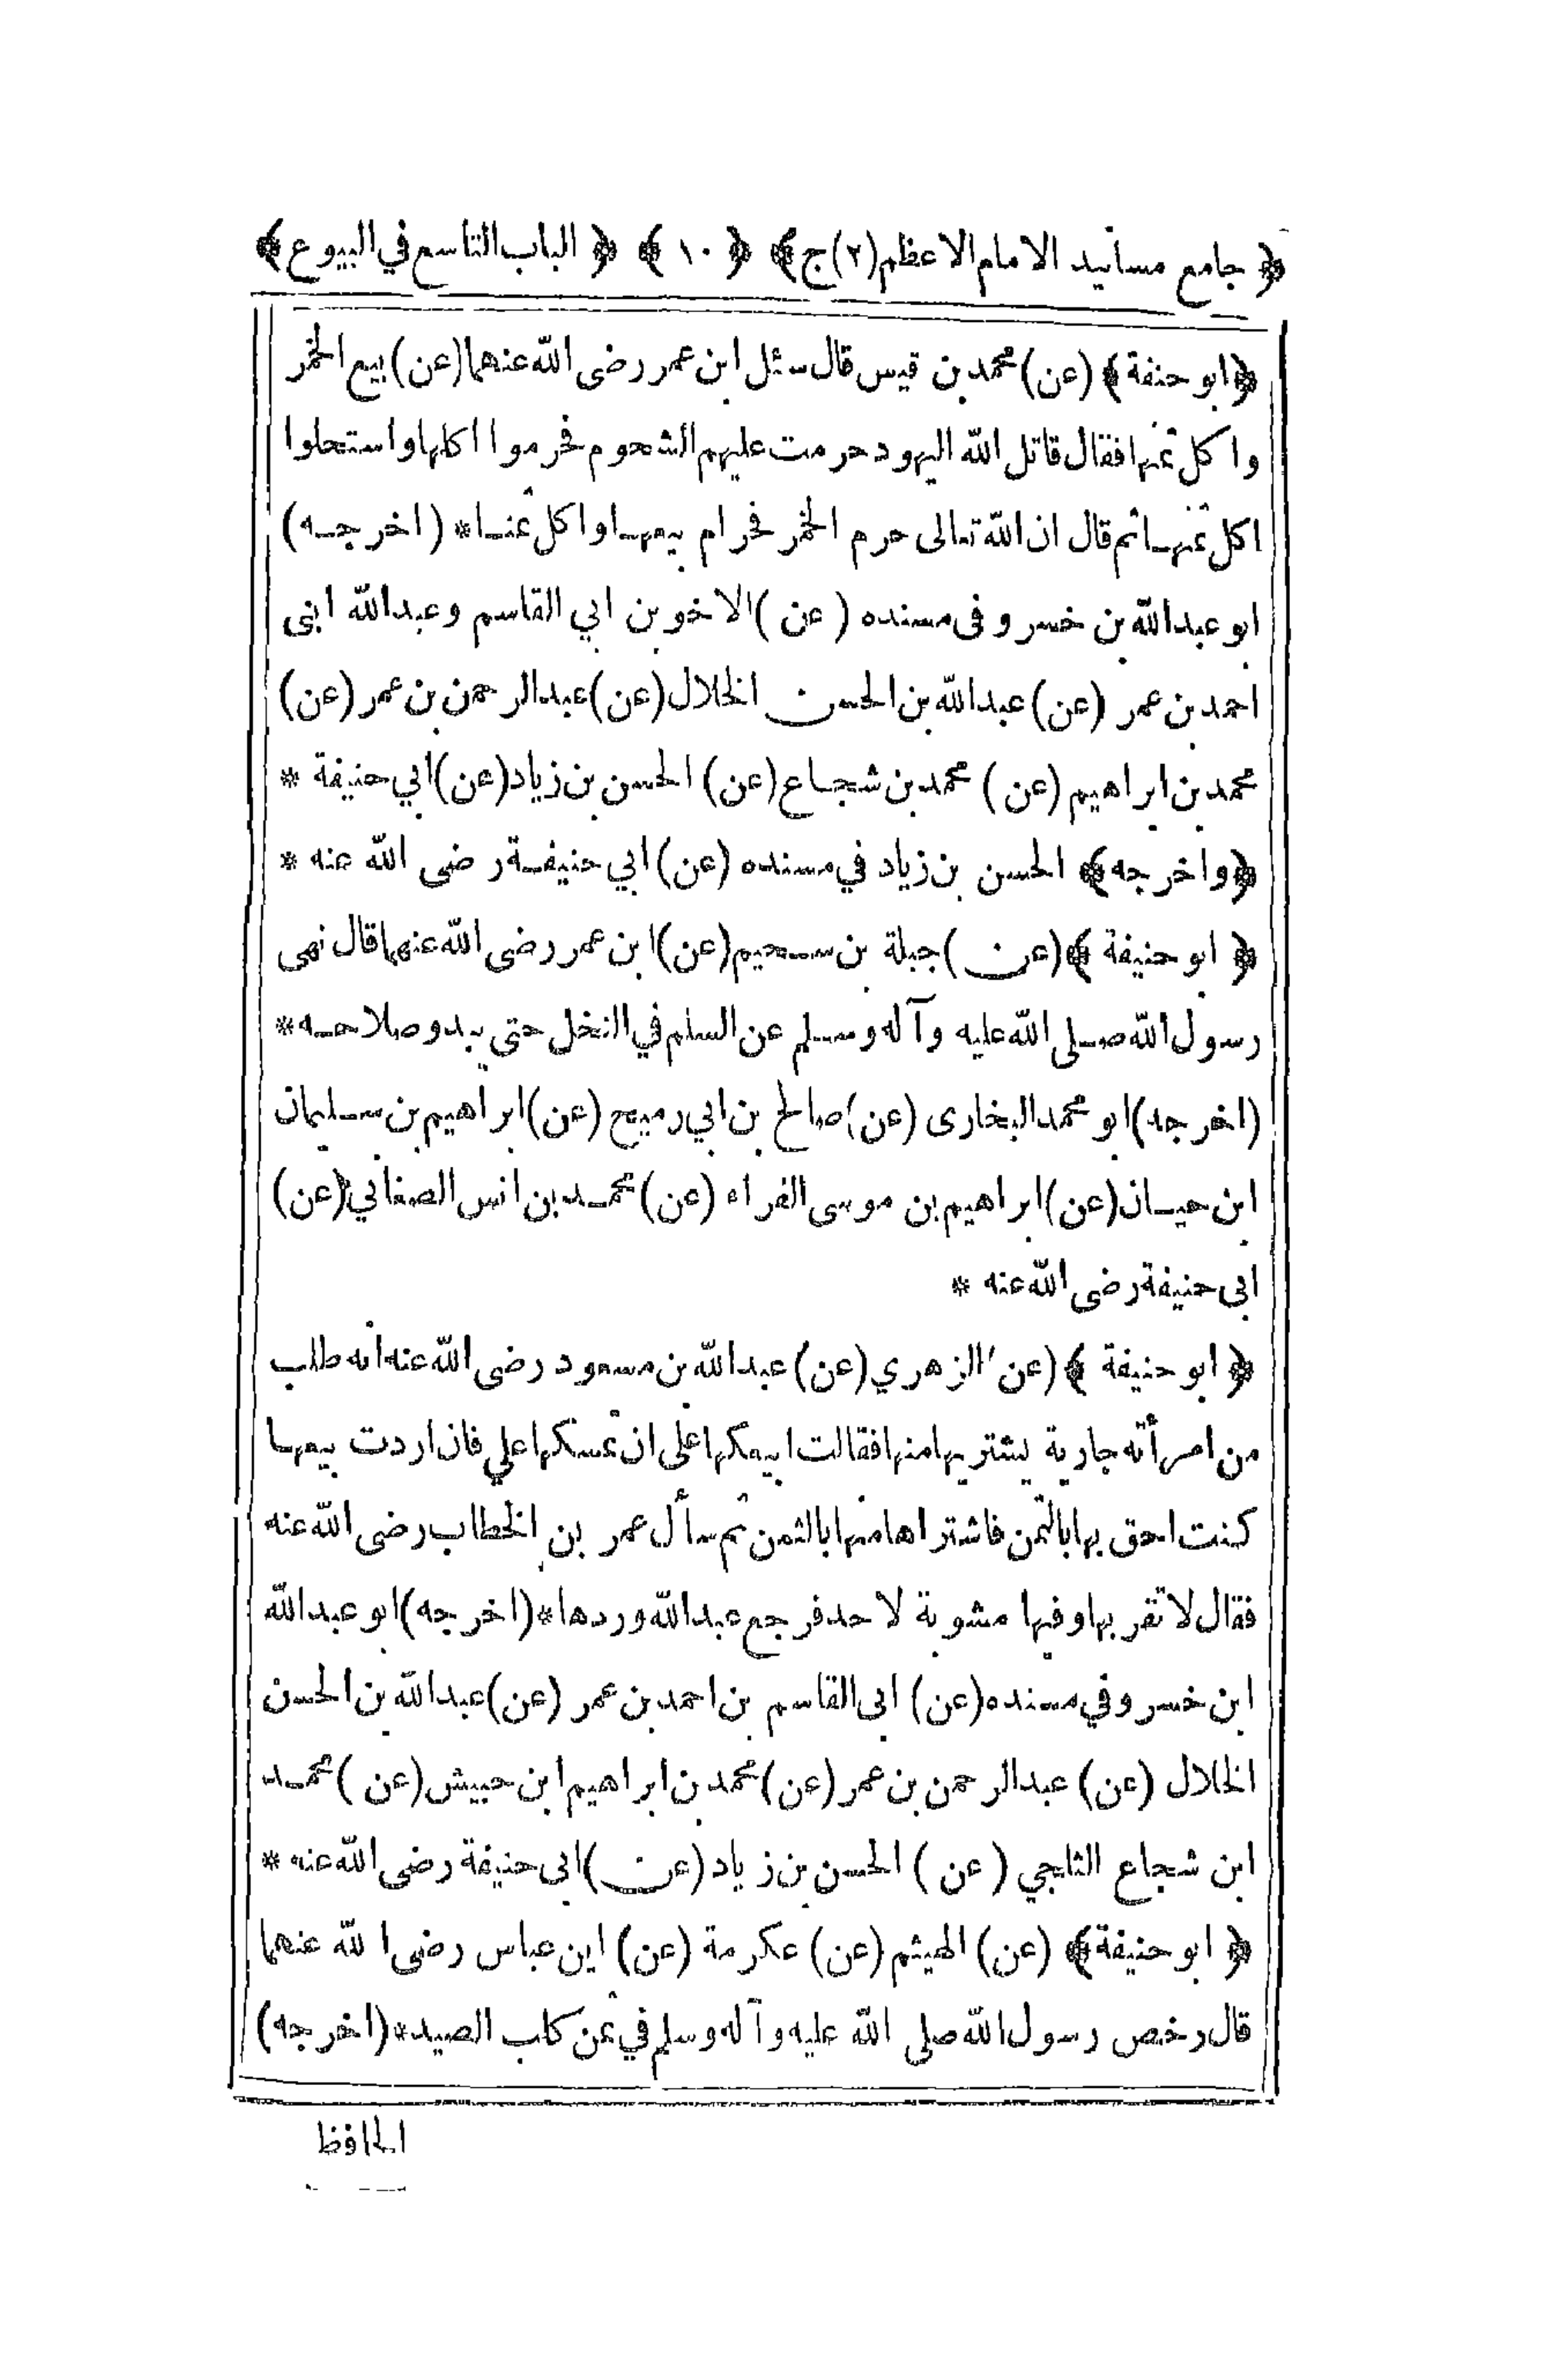 ﴿ جامع مسانيد الامام الاعظم (٢) ج ﴾ ﴿ ١٠ ﴾ ﴿ الباب التاسع في البيوع ﴾
﴿ ابو حنفة ﴾ (عن) محمد بن قيس قال سئل ابن عمر رضى الله عنهما (عن) بيع الخمر
واكل ثمنها فقال قاتل الله اليهود حرمت عليهم الشحوم فحرموا اكلها واستحلوا
اكل ثمنها ثم قال ان الله تعالى حرم الخمر فحرام بيعها واكل ثمنها * (اخرجه)
ابو عبد الله بن خسرو فى مسنده (عن) الاخوين ابي القاسم وعبد الله ابنى
احمد بن عمر (عن) عبد الله بن الحسن الخلال (عن) عبد الرحمن بن عمر (عن)
محمد بن ابراهيم (عن) محمد بن شجاع (عن) الحسن بن زياد (عن) ابي حنيفة *
﴿ واخرجه ﴾ الحسن بن زياد في مسنده (عن) ابي حنيفة رضى الله عنه *
﴿ ابو حنيفة ﴾ (عن) جبلة بن سحيم (عن) ابن عمر رضى الله عنهما قال نهى
رسول الله صلى الله عليه وآله وسلم عن السلم في النخل حتى يبدو صلاحه *
(اخرجه) ابو محمد البخارى (عن) صالح بن ابي رميح (عن) ابراهيم بن سليمان
ابن حيان (عن) ابراهيم بن موسى الفراء (عن) محمد بن انس الصغاني (عن)
ابى حنيفة رضى الله عنه *
﴿ ابو حنيفة ﴾ (عن) الزهري (عن) عبد الله بن مسعود رضى الله عنه انه طلب
من امرأته جارية يشتريها منها فقالت ابيعكها على ان تمسكها علي فان اردت بيعها
كنت احق بها بالثمن فاشتراها منها بالثمن ثم سأل عمر بن الخطاب رضى الله عنه
فقال لا تقربها وفيها مشوبة لاحد فرجع عبد الله وردها * (اخرجه) ابو عبد الله
ابن خسرو في مسنده (عن) ابى القاسم بن احمد بن عمر (عن) عبد الله بن الحسن
الخلال (عن) عبد الرحمن بن عمر (عن) محمد بن ابراهيم ابن حبيش (عن) محمد
ابن شجاع الثلجي (عن) الحسن بن زياد (عن) ابى حنيفة رضى الله عنه *
﴿ ابو حنيفة ﴾ (عن) الهيثم (عن) عكرمة (عن) ابن عباس رضى الله عنهما
قال رخص رسول الله صلى الله عليه وآله وسلم في ثمن كلب الصيد * (اخرجه)
الحافظ